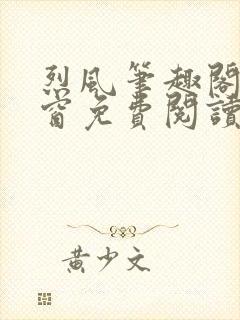 烈風筆趣閣
窗免費閱讀
黃少文